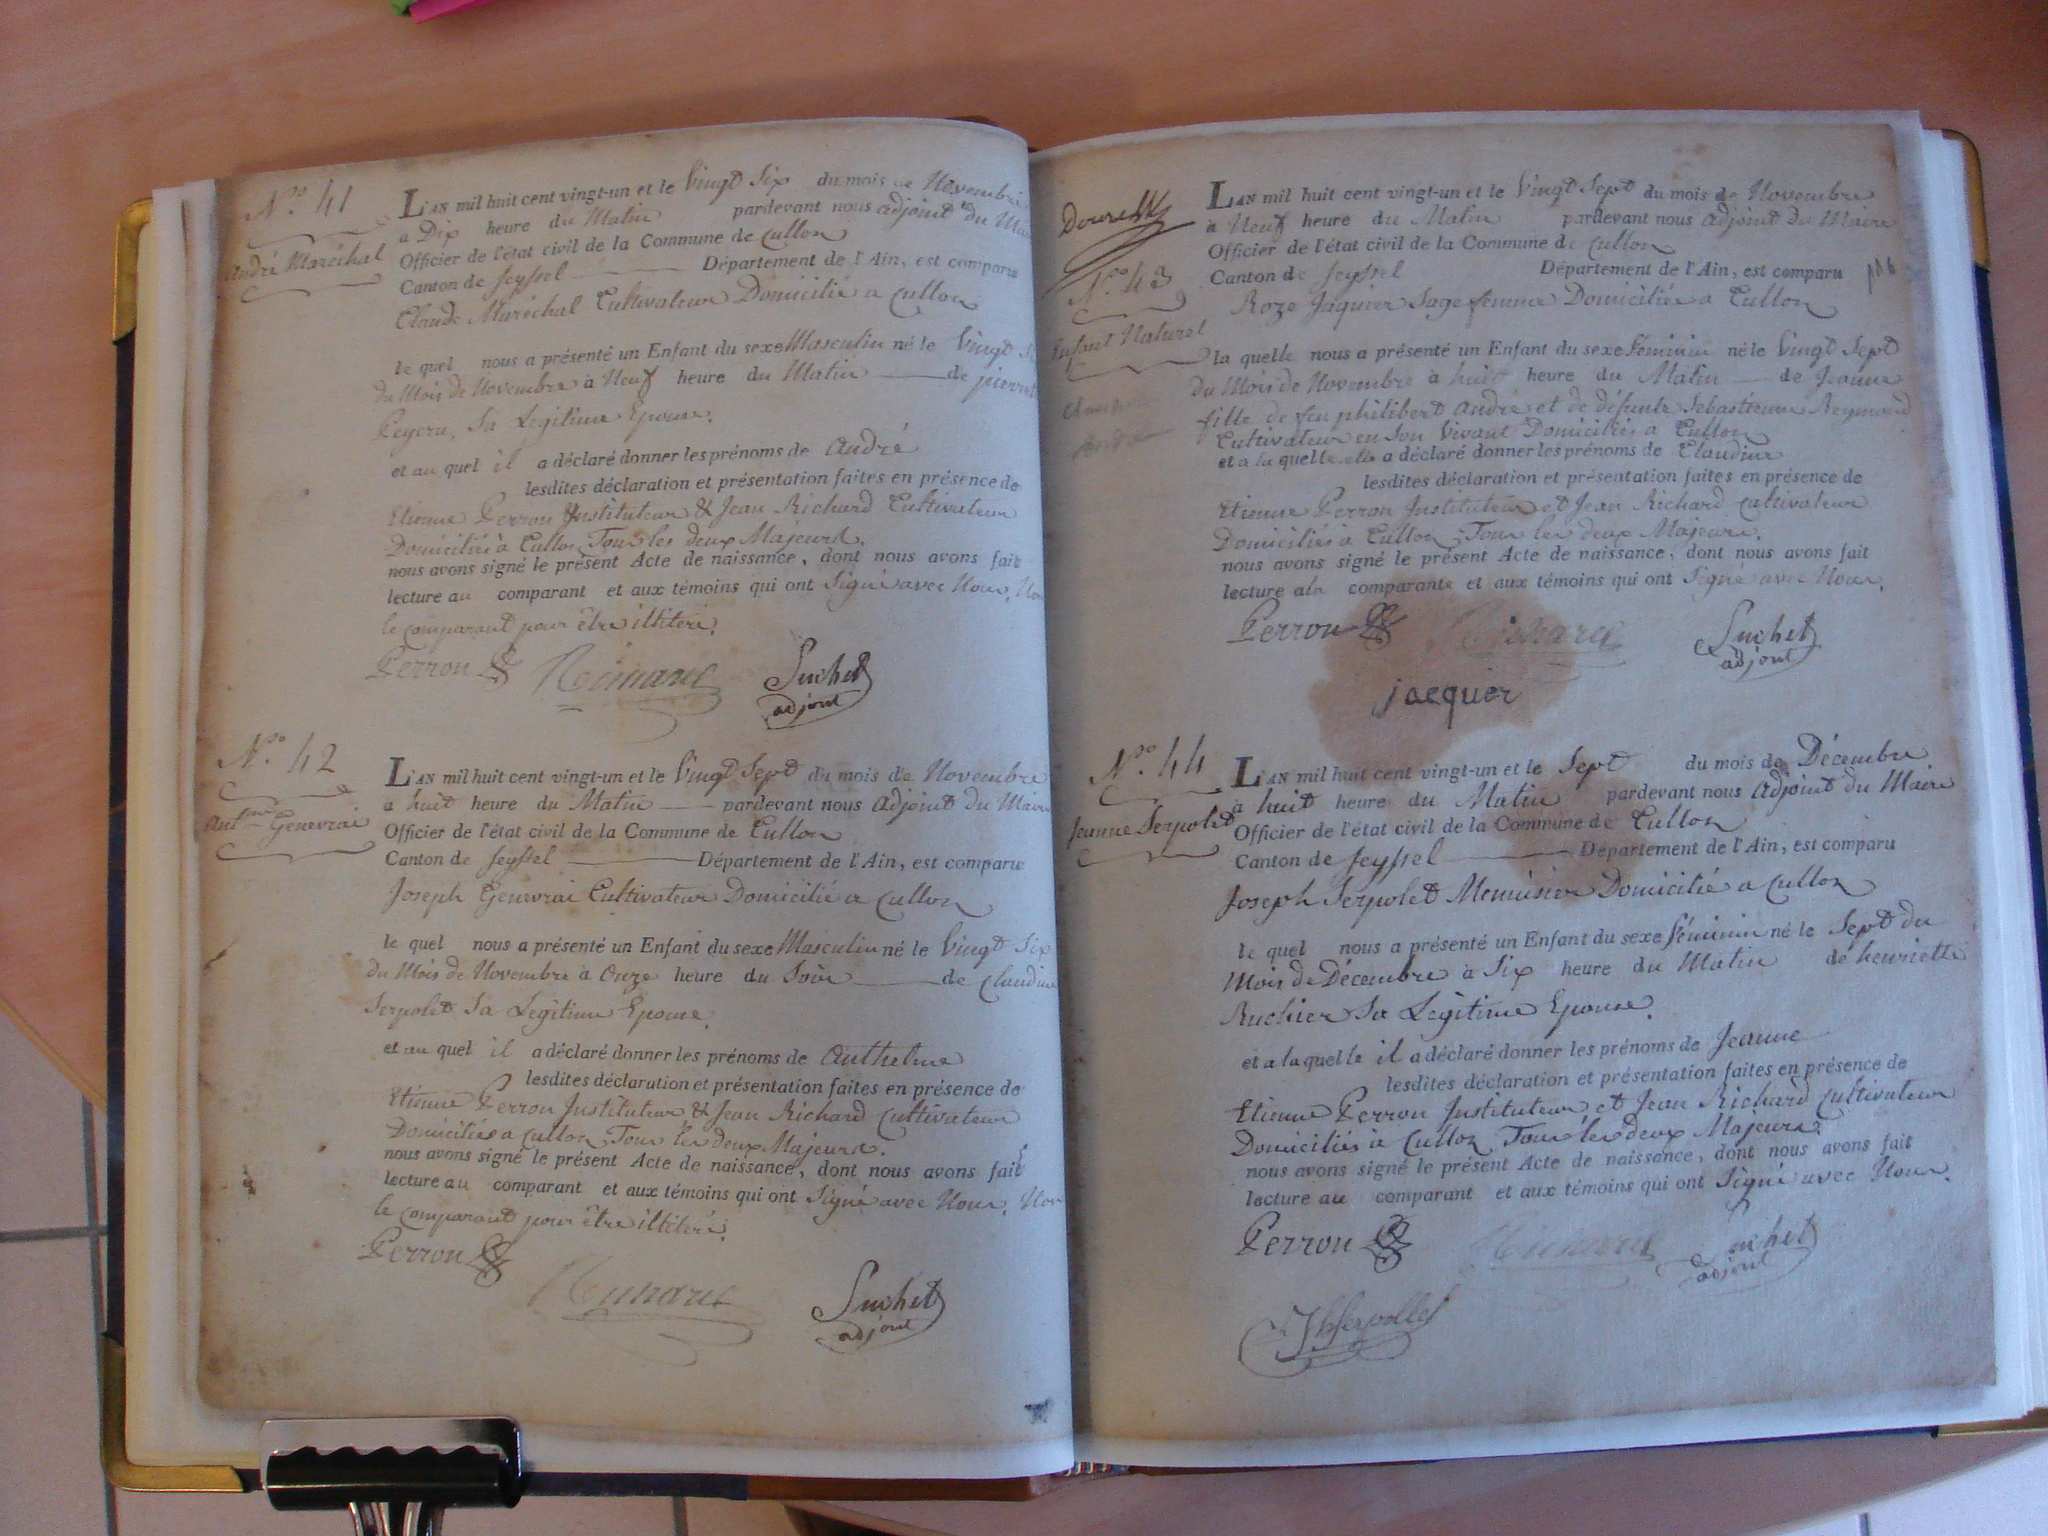 N.° 41
André Maréchal
L'AN mil huit cent vingt-un et le Vingt Six du mois de Novembre
a Dix heure du Matin pardevant nous adjoint du
Officier de l'état civil de la Commune de Culloz
Canton de Seyssel Département de l'Ain, est comparu
Claude Maréchal Cultivateur Domicilié a Culloz
le quel nous a présenté un Enfant du sexe Masculin né le Vingt
du Mois de Novembre à Neuf heure du Matin de
Peycru, Sa Legitime Epouse.
et au quel il a déclaré donner les prénoms de André
lesdites déclaration et présentation faites en présence de
Etienne Perron Instituteur & Jean Richard Cultivateur
Domiciliés à Culloz Tous les deux Majeurs.
nous avons signé le présent Acte de naissance, dont nous avons fait
lecture au comparant et aux témoins qui ont Signé avec Nous,
le comparant pour être illiteré.
Perron Richard Suchet
adjoint
N.° 42
Ant.me Genevrai
L'AN mil huit cent vingt-un et le Vingt Sept du mois de Novembre
a huit heure du Matin pardevant nous adjoint du Maire
Officier de l'état civil de la Commune de Culloz
Canton de Seyssel Département de l'Ain, est comparu
Joseph Genevrai Cultivateur Domicilié a Culloz
le quel nous a présenté un Enfant du sexe Masculin né le Vingt Six
du Mois de Novembre à Onze heure du Soir de Claudine
Serpolet Sa Legitime Epouse.
et au quel il a déclaré donner les prénoms de Anthelme
lesdites déclaration et présentation faites en présence de
Etienne Perron Instituteur & Jean Richard Cultivateur
Domiciliés a Culloz Tous les deux Majeurs.
nous avons signé le présent Acte de naissance, dont nous avons fait
lecture au comparant et aux témoins qui ont Signé avec Nous, Non
le comparant pour être illiteré.
Perron Richard Suchet
adjoint
N.° 43
Enfant Naturel
L'AN mil huit cent vingt-un et le Vingt Sept du mois de Novembre
a Neuf heure du Matin pardevant nous adjoint du Maire
Officier de l'état civil de la Commune de Culloz
Canton de Seyssel Département de l'Ain, est comparu
Roze Jaquier Sage femme Domiciliée a Culloz
la quelle nous a présenté un Enfant du sexe Féminin né le Vingt Sept
du Mois de Novembre à huit heure du Matin de Jeanne
fille de feu philibert André et de défunte Sebastienne Reymond
Cultivateur en Son Vivant Domiciliés a Culloz
et a la quelle elle a déclaré donner les prénoms de Claudine
lesdites déclaration et présentation faites en présence de
Etienne Perron Instituteur et Jean Richard Cultivateur
Domiciliés a Culloz Tous les deux Majeurs.
nous avons signé le présent Acte de naissance, dont nous avons fait
lecture ala comparante et aux témoins qui ont Signé avec Nous.
Perron Richard Suchet
adjoint
jacquer
N.° 44
Jeanne Serpolet
L'AN mil huit cent vingt-un et le Sept du mois de Décembre
à huit heure du Matin pardevant nous adjoint du Maire
Officier de l'état civil de la Commune de Culloz
Canton de Seyssel Département de l'Ain, est comparu
Joseph Serpolet Menuisier Domicilié a Culloz
le quel nous a présenté un Enfant du sexe Féminin né le Sept du
Mois de Décembre à Six heure du Matin de henriette
Ruchier Sa Legitime Epouse.
et a laquelle il a déclaré donner les prénoms de Jeanne
lesdites déclaration et présentation faites en présence de
Etienne Perron Instituteur et Jean Richard Cultivateur
Domiciliés à Culloz Tous les deux Majeurs
nous avons signé le présent Acte de naissance, dont nous avons fait
lecture au comparant et aux témoins qui ont Signé avec Nous.
Perron Richard Suchet
adjoint
Jh Serpollet